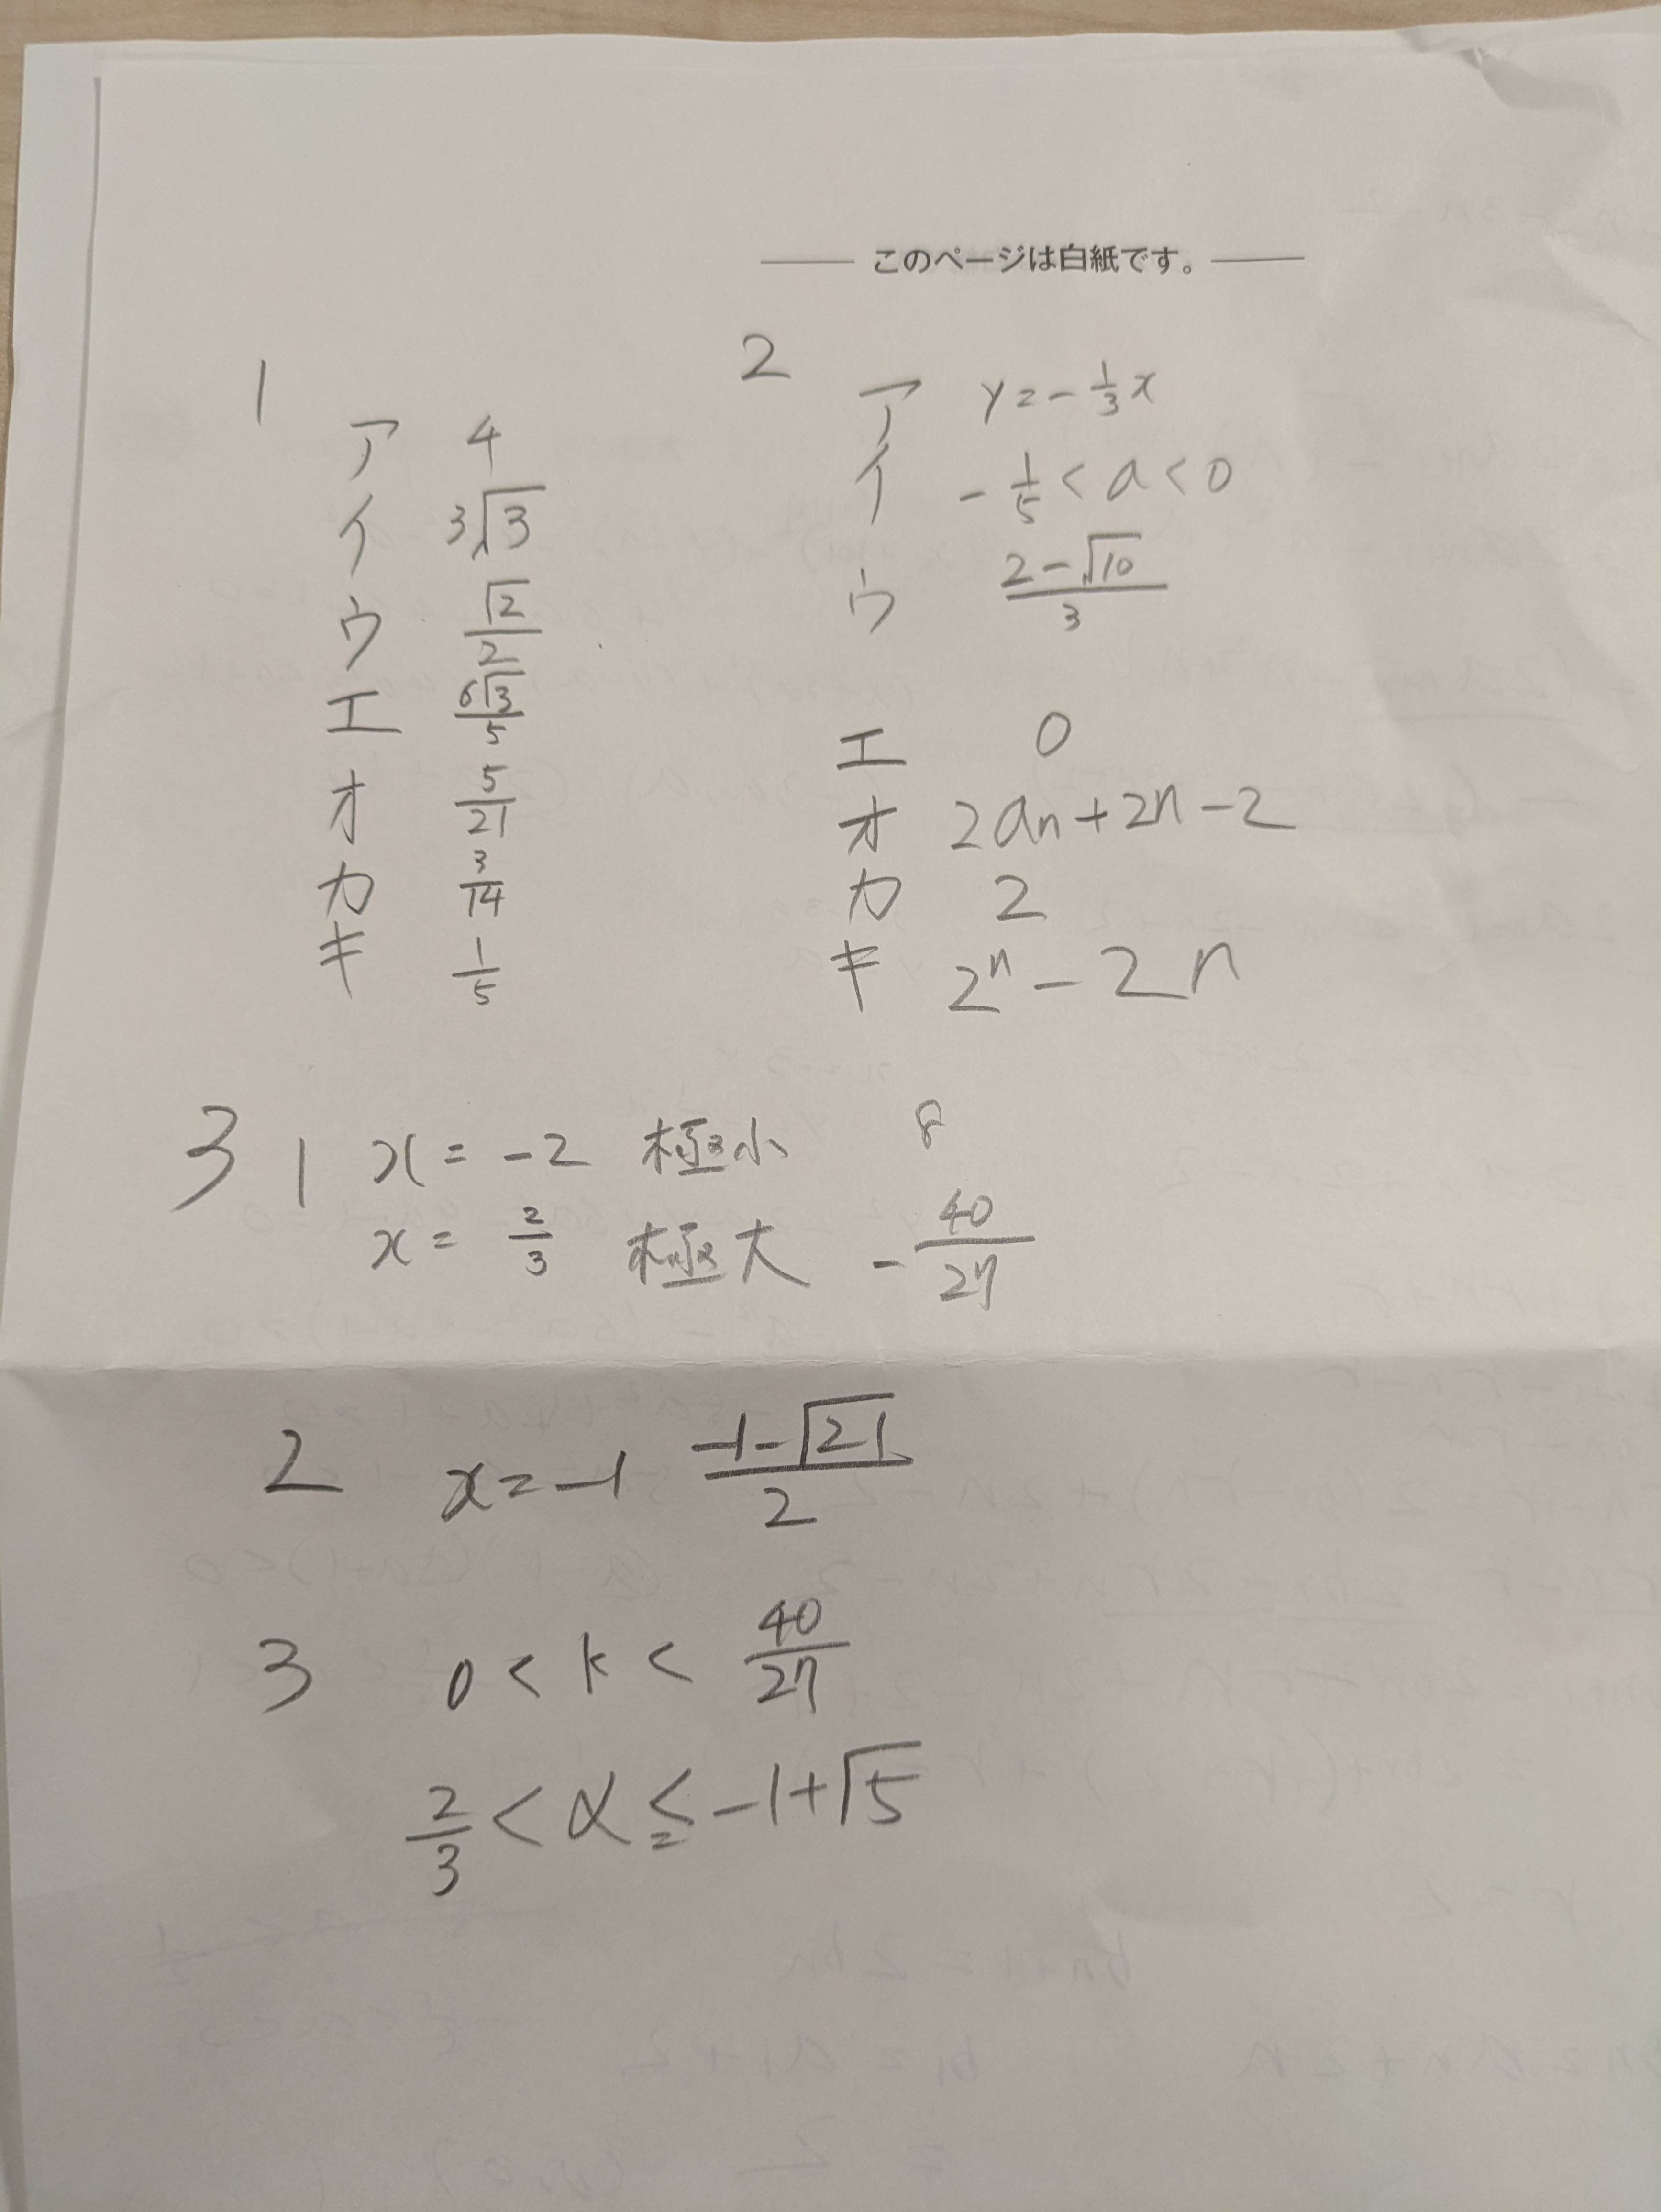 このページは白紙です。
1
ア 4
イ 3√3
ウ √2/2
エ 6√3/5
オ 5/21
カ 3/14
キ 1/5
2
ア y=-1/3x
イ -1/5<a<0
ウ (2-√10)/3
エ 0
オ 2an+2n-2
カ 2
キ 2^n-2n
3 1 x=-2 極小 8
x=2/3 極大 -40/27
2 x=-1 (-1-√21)/2
3 0<k<40/27
2/3<α≦-1+√5